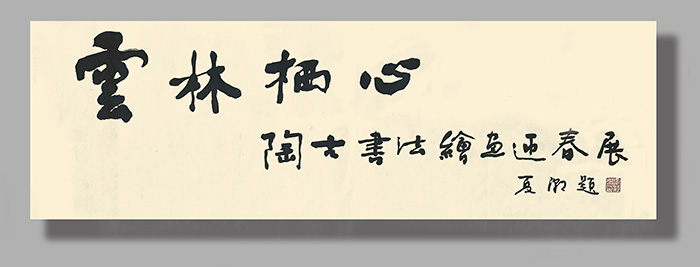 雲林栖心
陶古書法繪画迎春展
夏潮題